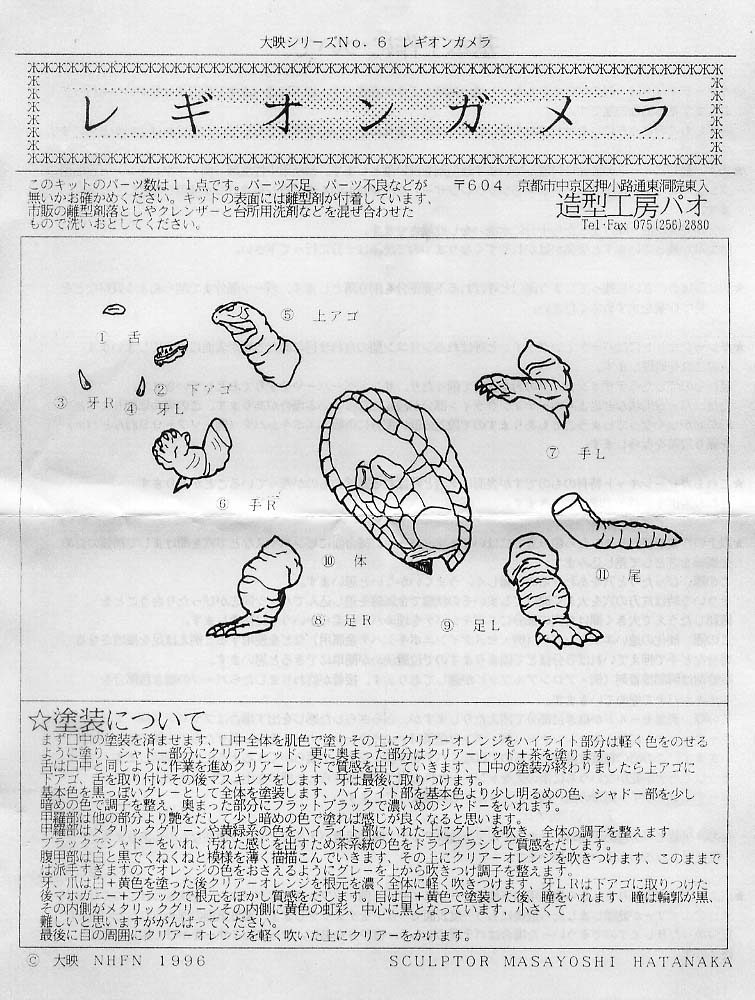 大映シリーズNo.6 レギオンガメラ
レギオンガメラ
このキットのパーツ数は11点です。パーツ不足、パーツ不良などが
無いかお確かめください。キットの表面には離型剤が付着しています、
市販の離型剤落としやクレンザーと台所用洗剤などを混ぜ合わせた
もので洗いおとしてください。
〒604 京都市中京区押小路通東洞院東入
造型工房パオ
Tel・Fax 075(256)2880
⑤ 上アゴ
① 舌
② 下アゴ
③ 牙R
④ 牙L
⑦ 手L
⑥ 手R
⑩ 体
⑪ 尾
⑧ 足R
⑨ 足L
☆塗装について
まず口中の塗装を済ませます、口中全体を肌色で塗りその上にクリアーオレンジをハイライト部分は軽く色をのせる
ように塗り、シャドー部分にクリアーレッド、更に奥まった部分はクリアーレッド+茶を塗ります。
舌は口中と同じように作業を進めクリアーレッドで質感を出していきます、口中の塗装が終わりましたら上アゴに
下アゴ、舌を取り付けその後マスキングをします、牙は最後に取りつけます。
基本色を黒っぽいグレーとして全体を塗装します、ハイライト部を基本色より少し明るめの色、シャドー部を少し
暗めの色で調子を整え、奥まった部分にフラットブラックで濃いめのシャドーをいれます。
甲羅部は他の部分より艶をだして少し暗めの色で塗れば感じが良くなると思います。
甲羅部はメタリックグリーンや黄緑系の色をハイライト部にいれた上にグレーを吹き、全体の調子を整えます
ブラックでシャドーをいれ、汚れた感じを出すため茶系統の色をドライブラシして質感をだします。
腹甲部は白と黒でくねくねと模様を薄く描描こんでいきます、その上にクリアーオレンジを吹きつけます、このままで
は派手すぎますのでオレンジの色をおさえるようにグレーを上から吹きつけ調子を整えます。
牙、爪は白+黄色を塗った後クリアーオレンジを根元を濃く全体に軽く吹きつけます、牙LRは下アゴに取りつけた
後マホガニー+ブラックで根元をぼかし質感をだします。目は白+黄色で塗装した後、瞳をいれます、瞳は輪郭が黒、
その内側がメタリックグリーンその内側に黄色の虹彩、中心に黒となっています、小さくて
難しいと思いますががんばってください。
最後に目の周囲にクリアーオレンジを軽く吹いた上にクリアーをかけます。
© 大映 NHFN 1996
SCULPTOR MASAYOSHI HATANAKA